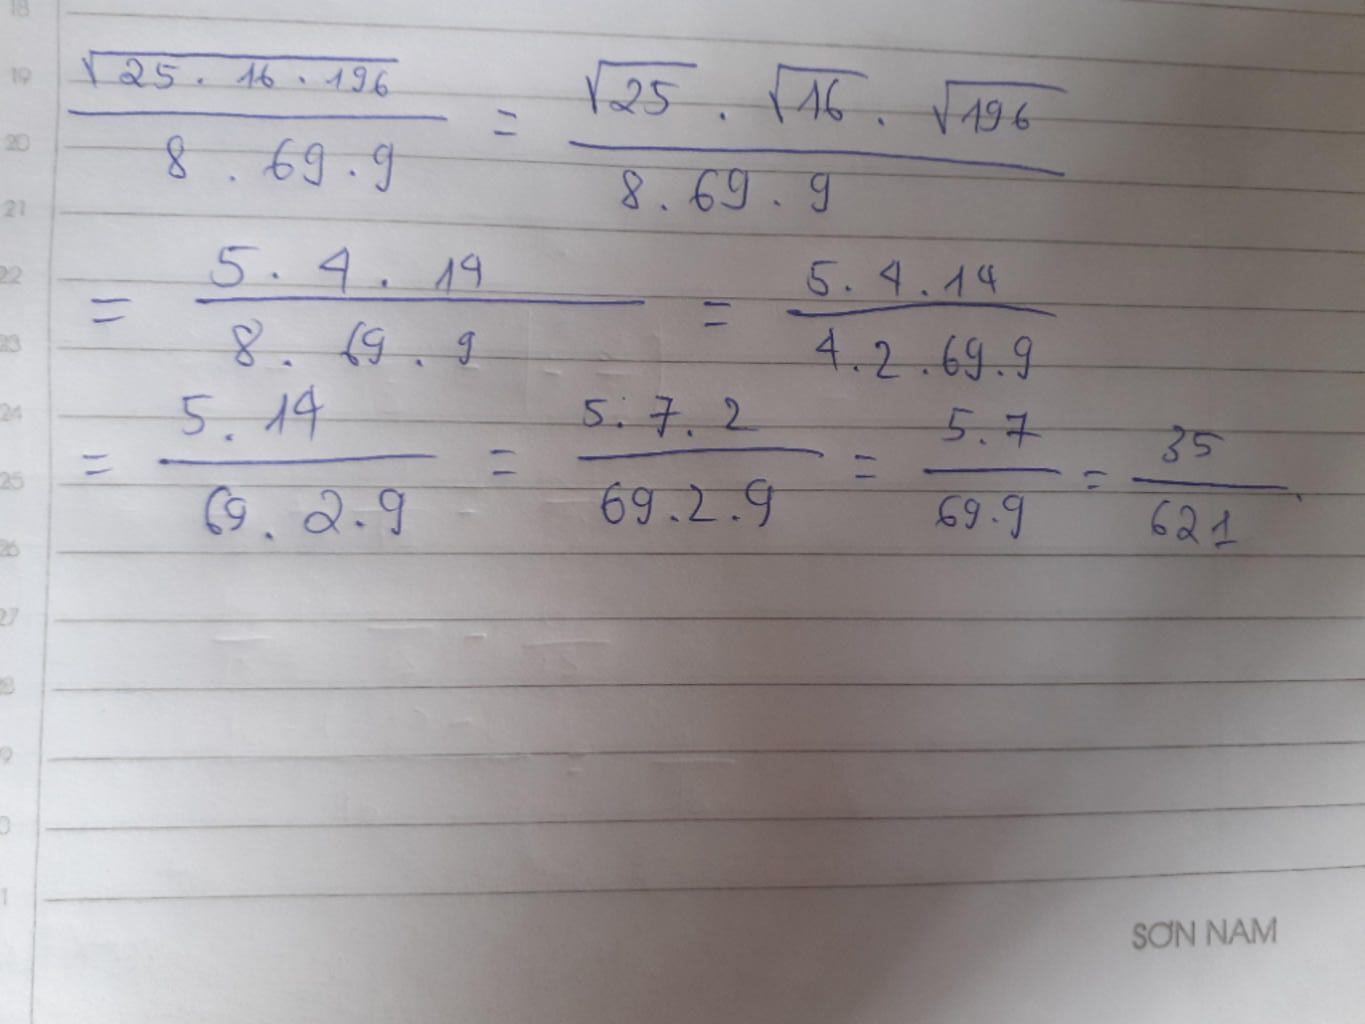 18
19
√25 . 16 . 196 / 8 . 69 . 9 = √25 . √16 . √196 / 8 . 69 . 9
20
21
22
= 5 . 4 . 14 / 8 . 69 . 9 = 5 . 4 . 14 / 4 . 2 . 69 . 9
23
24
= 5 . 14 / 69 . 2 . 9 = 5 . 7 . 2 / 69 . 2 . 9 = 5 . 7 / 69 . 9 = 35 / 621
25
26
27
SƠN NAM